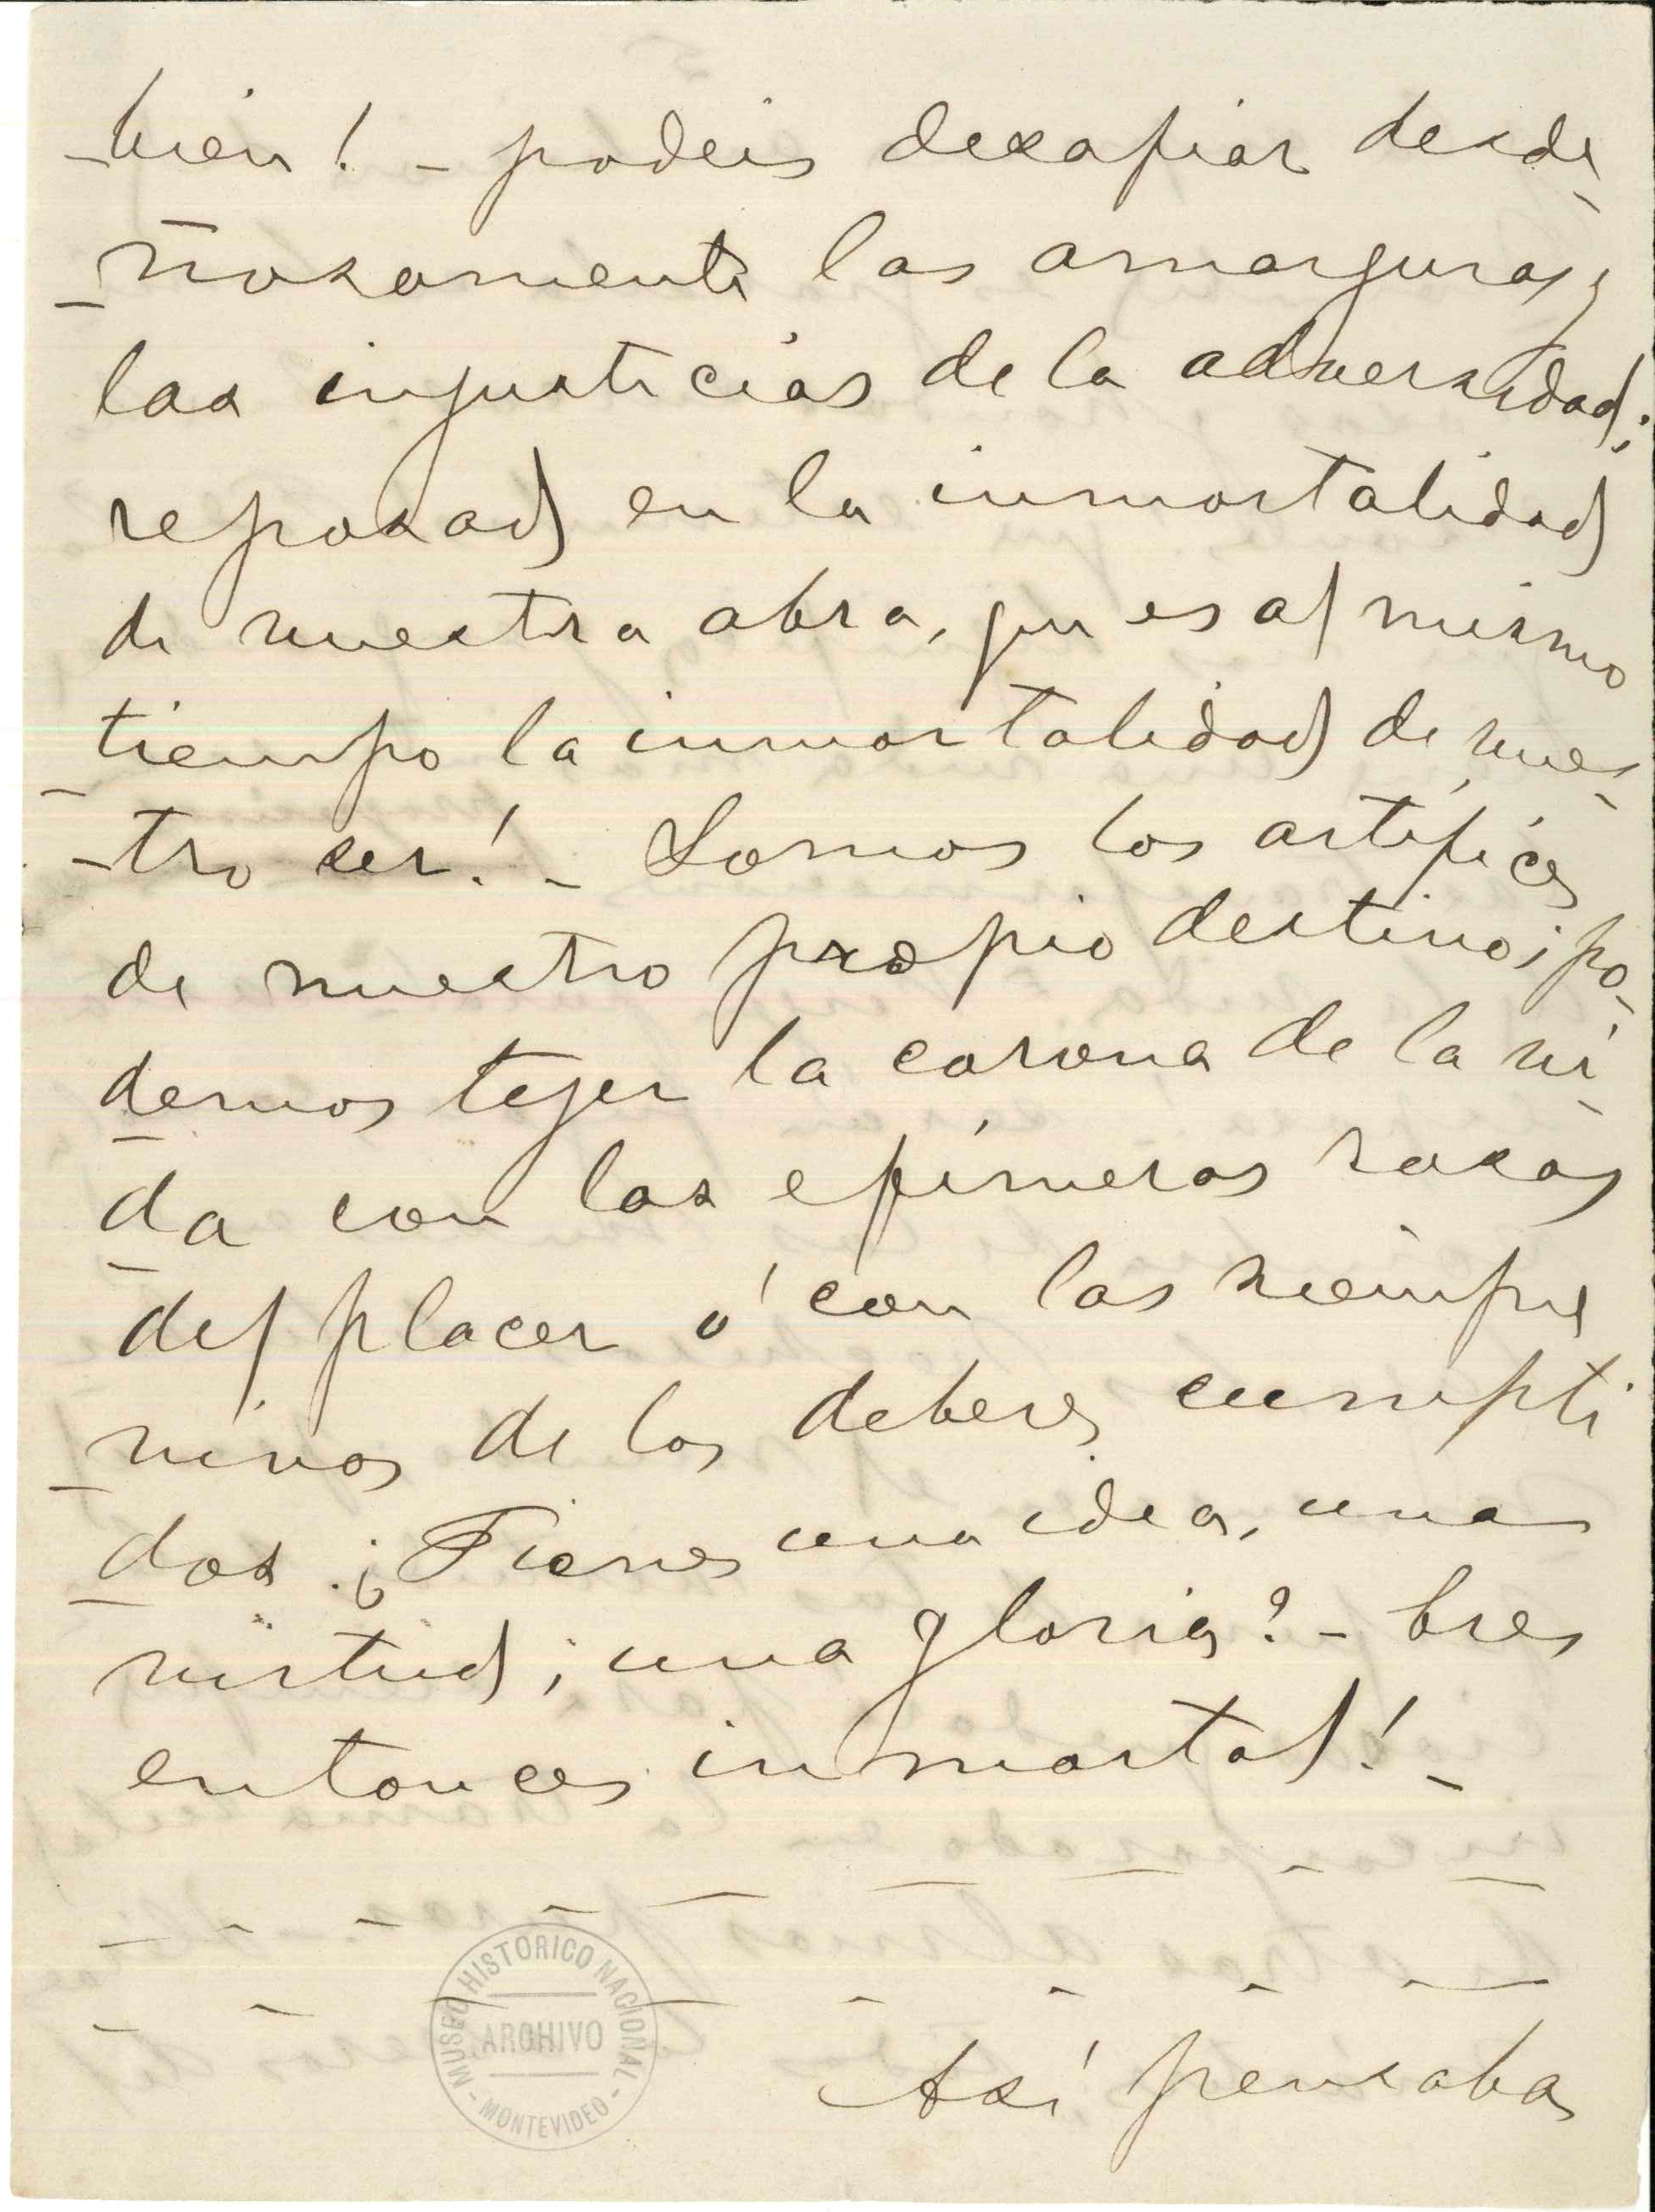 -bién! - podeis desafiar desde-
-ñosamente las amarguras y
las injusticias de la adversidad;
reposad en la inmortalidad
de vuestra obra, que es al mismo
tiempo la inmortalidad de vues-
-tro ser! - Somos los artífices
de nuestro propio destino; po-
demos tejer la corona de la vi-
-da con las efímeras rosas
del placer ó con las siempre
-vivas de los deberes cumpli
-dos. ¿Tienes una idea, una
virtud, una gloria? - Eres
entonces inmortal! -
Así pensaba
MUSEO HISTORICO NACIONAL - MONTEVIDEO -
ARCHIVO